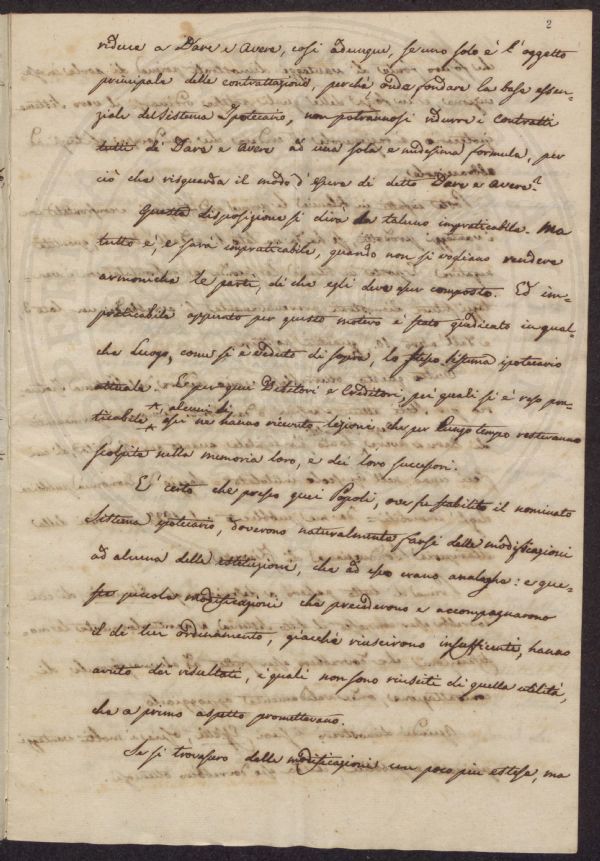 2
riduce a Dare e Avere, così adunque, se uno solo è l'oggetto
principale delle contrattazioni, perché onde fondare la base essen-
ziale del Sistema Ipotecario, non potrannosi ridurre i Contratti
tutti di Dare e Avere ad una sola e medesima formula, per
ciò che risguarda il modo d'essere di detto Dare e Avere?
Questa disposizione si dirà da taluno impraticabile. Ma
tutto è, e sarà impraticabile, quando non si vogliano rendere
armoniche le parti, di che egli deve esser composto. Ed im-
praticabile appunto per questo motivo è stato giudicato in qual-
che Luogo, come si è veduto di sopra, lo stesso sistema ipotecario
attuale. E que' Debitori e Creditori, pei quali si è reso
ticabile, alcuni di essi ne hanno ricevuto lezioni, che per lungo tempo resteranno
scolpite nella memoria loro, e dei loro successori.
E' certo che presso quei Popoli, ove fu stabilito il nominato
Sistema ipotecario, doverono naturalmente farsi delle modificazioni
ad alcuna delle istituzioni, che ad esso erano analoghe: e que-
ste piccole modificazioni che precederono e accompagnarono
il di lui ordinamento, giacchè riuscirono insufficienti, hanno
avuto dei risultati, i quali non sono riusciti di quella utilità,
che a primo aspetto promettevano.
Se si trovassero delle modificazioni un poco più estese, ma